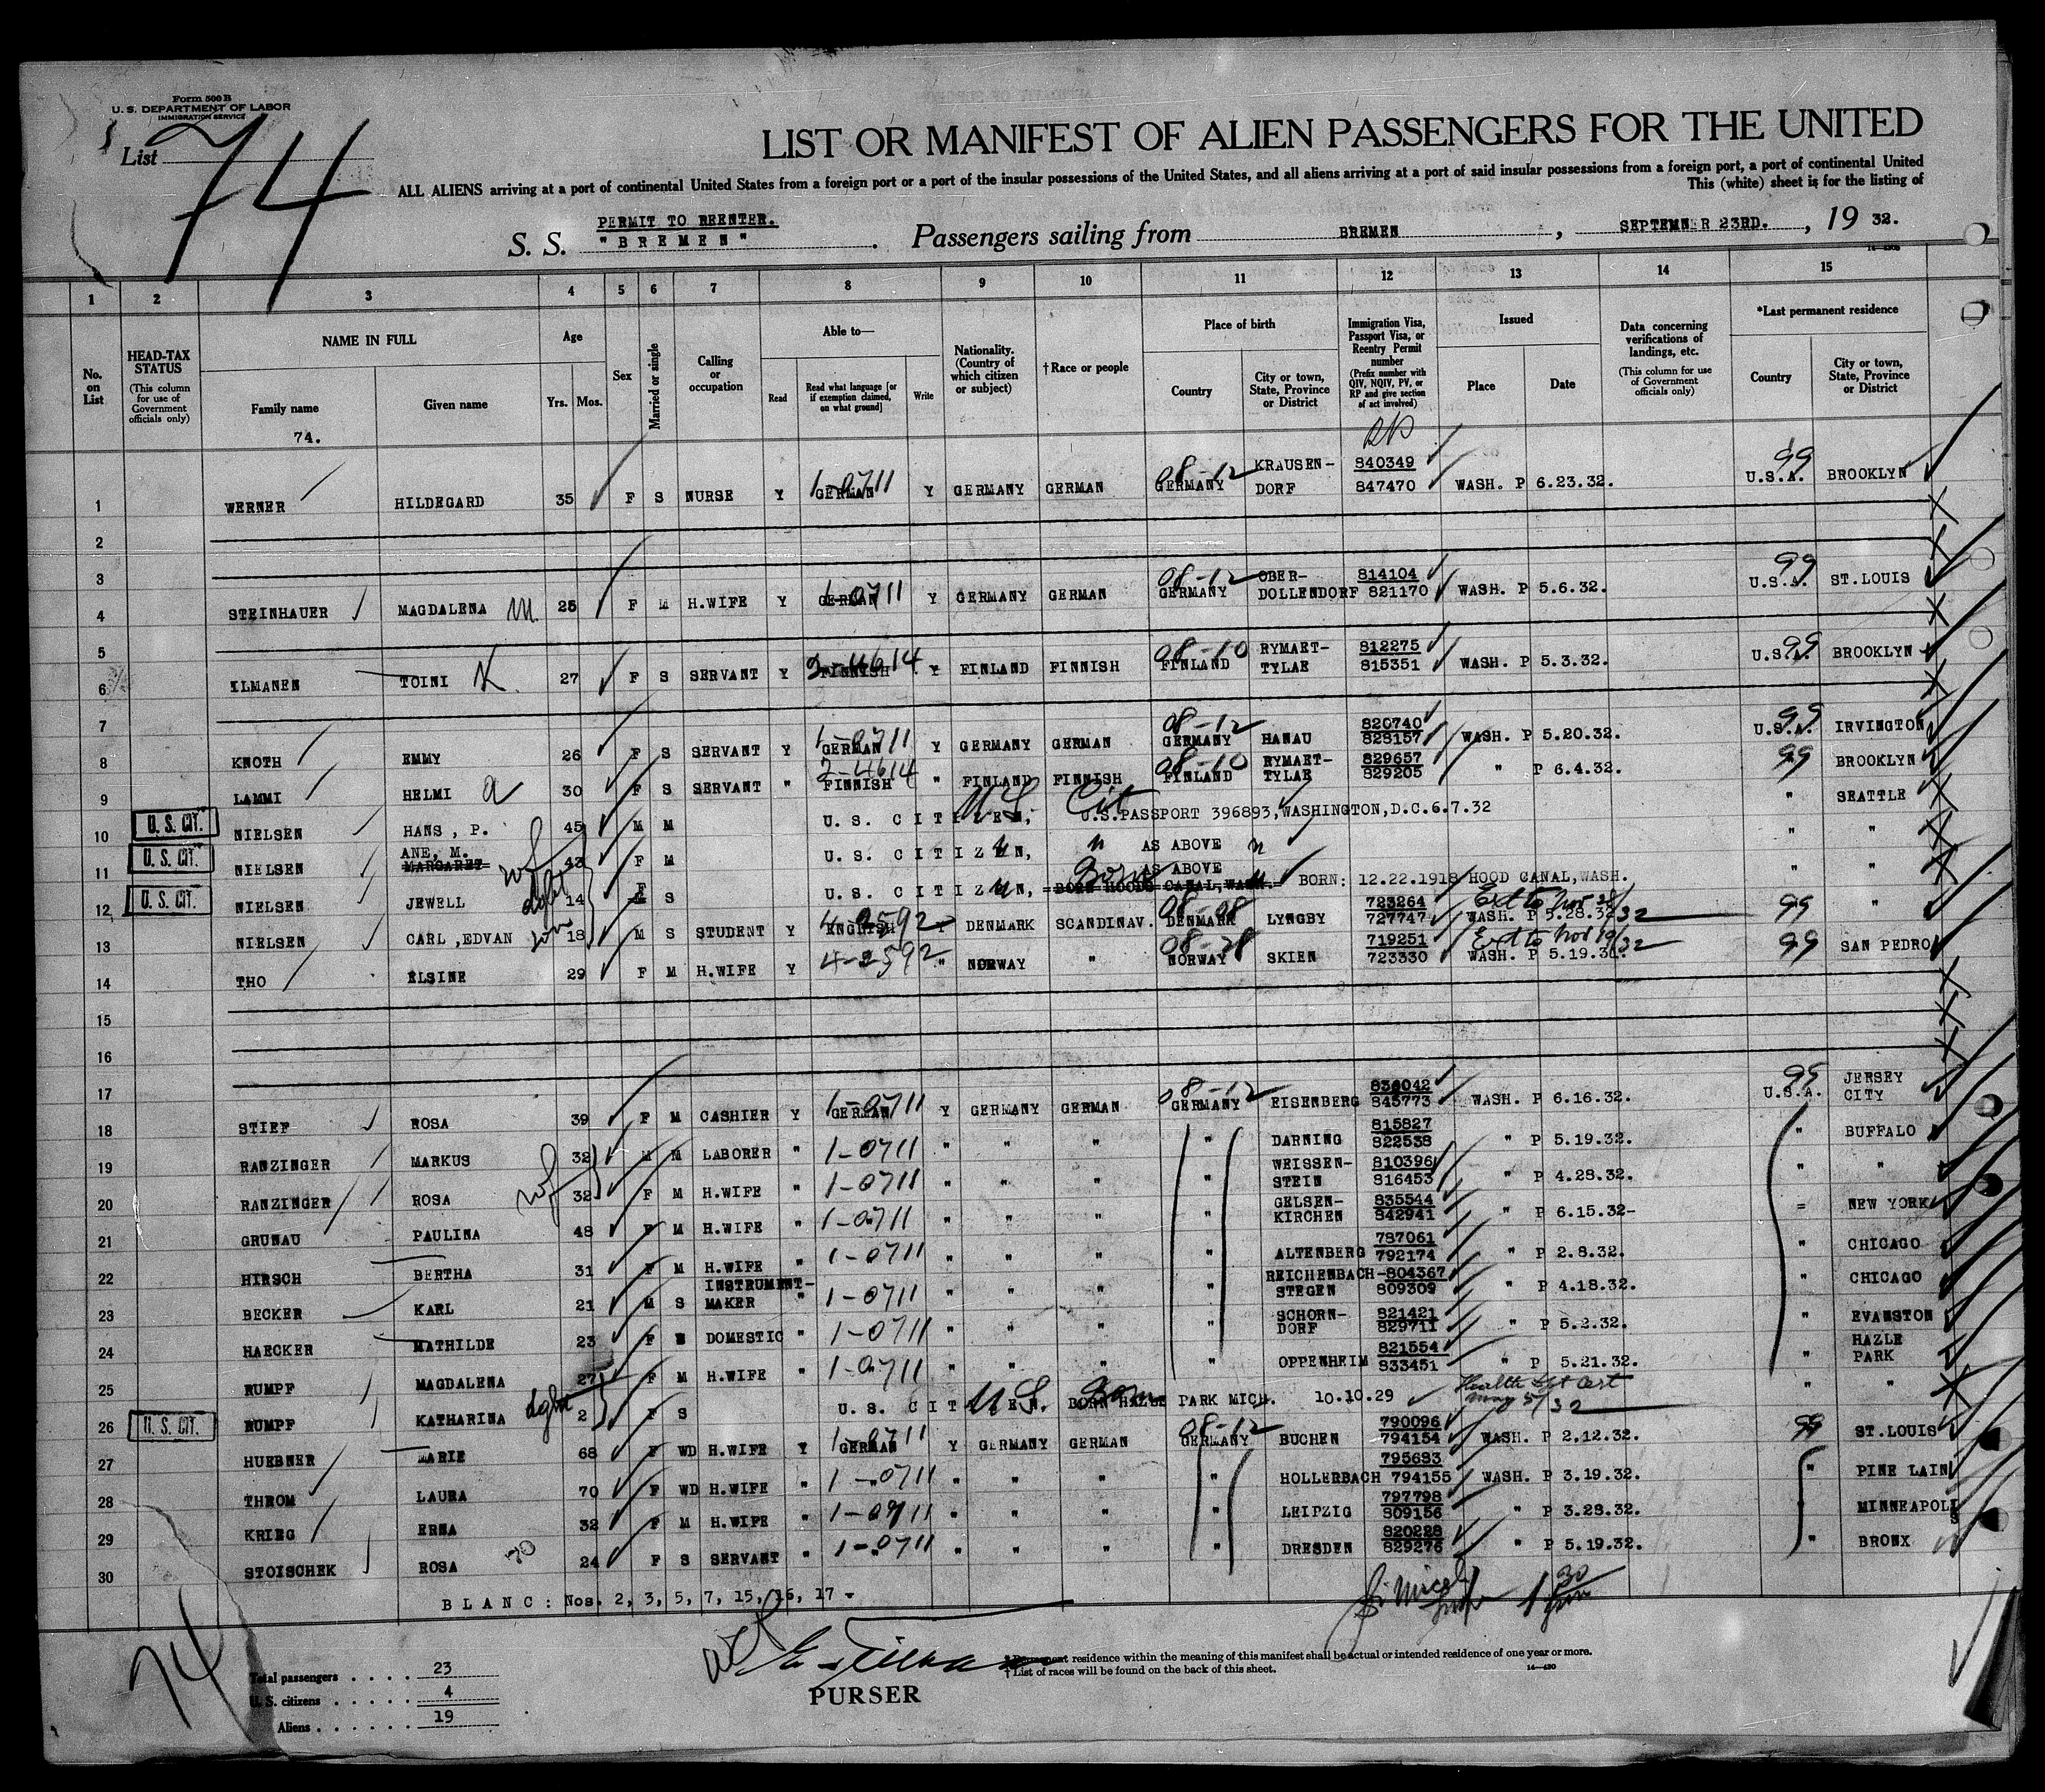 Form 500 B
U. S. DEPARTMENT OF LABOR
IMMIGRATION SERVICE
List 74
LIST OR MANIFEST OF ALIEN PASSENGERS FOR THE UNITED
ALL ALIENS arriving at a port of continental United States from a foreign port or a port of the insular possessions of the United States, and all aliens arriving at a port of said insular possessions from a foreign port, a port of continental United
This (white) sheet is for the listing of
PERMIT TO REENTER.
S. S. "BREMEN" . Passengers sailing from BREMEN , SEPTEMNER 23RD. , 19 32.
1 2 3 4 5 6 7 8 9 10 11 12 13 14 15
No. on List
HEAD-TAX STATUS (This column for use of Government officials only)
NAME IN FULL Family name Given name
74.
Age Yrs. Mos.
Sex
Married or single
Calling or occupation
Able to— Read Read what language [or if exemption claimed, on what ground] Write
Nationality. (Country of which citizen or subject)
†Race or people
Place of birth Country City or town, State, Province or District
Immigration Visa, Passport Visa, or Reentry Permit number (Prefix number with QIV, NQIV, PV, or RP and give section of act involved)
Issued Place Date
Data concerning verifications of landings, etc. (This column for use of Government officials only)
*Last permanent residence Country City or town, State, Province or District
1 WERNER HILDEGARD 35 F S NURSE Y GERMAN 1-0711 Y GERMANY GERMAN 08-12 GERMANY KRAUSEN-DORF 840349 847470 WASH. P 6.23.32. 99 U.S.A. BROOKLYN
2
3
4 STEINHAUER MAGDALENA M. 25 F M H.WIFE Y GERMAN 1-0711 Y GERMANY GERMAN 08-12 GERMANY OBER-DOLLENDORF 814104 821170 WASH. P 5.6.32. 99 U.S.A. ST.LOUIS
5
6 ILMANEN TOINI K. 27 F S SERVANT Y FINNISH 2-4614 Y FINLAND FINNISH 08-10 FINLAND RYMAET-TYLAE 812275 815351 WASH. P 5.3.32. 99 U.S.A. BROOKLYN
7
8 KNOTH EMMY 26 F S SERVANT Y GERMAN 1-0711 Y GERMANY GERMAN 08-12 GERMANY HANAU 820740 828157 WASH. P 5.20.32. 99 U.S.A. IRVINGTON
9 LAMMI HELMI a 30 F S SERVANT " FINNISH 2-4614 " FINLAND FINNISH 08-10 FINLAND RYMAET-TYLAE 829657 829205 " P 6.4.32. 99 BROOKLYN
10 U. S. CIT. NIELSEN HANS , P. 45 M M U. S. CITIZEN, U.S. Cit U.S.PASSPORT 396893, WASHINGTON,D.C.6.7.32 " SEATTLE
11 U. S. CIT. NIELSEN ANE, M. MARGARET wf 43 F M U. S. CITIZEN, " AS ABOVE " " "
12 U. S. CIT. NIELSEN JEWELL dght 14 F S U. S. CITIZEN, AS ABOVE BORN HOODS CANAL, WASH. Born BORN: 12.22.1918 HOOD CANAL,WASH. " "
13 NIELSEN CARL ,EDVAN son 18 M S STUDENT Y ENGLISH 4-2592 Y DENMARK SCANDINAV. 08-08 DENMARK LYNGBY 723264 727747 Ext to Nov 28/32 WASH. P 5.28.32 99 "
14 THO ELSINE 29 F M H.WIFE Y 4-2592 " NORWAY " 08-28 NORWAY SKIEN 719251 723330 Ext to Nov 19/32 WASH. P 5.19.31. 99 SAN PEDRO
15
16
17
18 STIEF ROSA 39 F M CASHIER Y GERMAN 1-0711 Y GERMANY GERMAN 08-12 GERMANY EISENBERG 836042 845773 WASH. P 6.16.32. 99 U.S.A. JERSEY CITY
19 RANZINGER MARKUS 32 M M LABORER " 1-0711 " " " " DARNING 815827 822538 " P 5.19.32. " BUFFALO
20 RANZINGER ROSA wf 32 F M H.WIFE " 1-0711 " " " " WEISSEN-STEIN 810396 816453 " P 4.28.32. " "
21 GRUNAU PAULINA 48 F M H.WIFE " 1-0711 " " " " GELSEN-KIRCHEN 835544 842941 " P 6.15.32- = NEW YORK
22 HIRSCH BERTHA 31 F M H.WIFE " 1-0711 " " " " ALTENBERG 787061 792174 " P 2.8.32. " CHICAGO
23 BECKER KARL 21 M S INSTRUMENT-MAKER " 1-0711 " " " " REICHENBACH-STEGEN 804367 809309 " P 4.18.32. " CHICAGO
24 HAECKER MATHILDE 23 F S DOMESTIC " 1-0711 " " " " SCHORN-DORF 821421 829711 " P 5.2.32. " EVANSTON
25 RUMPF MAGDALENA 27 F M H.WIFE " 1-0711 " " " " OPPENHEIM 821554 833451 " P 5.21.32. " HAZLE PARK
26 U. S. CIT. RUMPF KATHARINA dght 2 F S U. S. CITIZEN. U.S. Born BORN HAZLE PARK MICH. 10.10.29 Health Dept Cert May 5/32 " "
27 HUEBNER MARIE 68 F WD H.WIFE Y GERMAN 1-0711 Y GERMANY GERMAN 08-12 GERMANY BUCHEN 790096 794154 WASH. P 2.12.32. 99 ST.LOUIS
28 THROM LAURA 70 F WD H.WIFE " 1-0711 " " " " HOLLERBACH 795693 794155 WASH. P 3.19.32. " PINE LAIN
29 KRIEG ERNA 32 F M H.WIFE " 1-0711 " " " " LEIPZIG 797798 809156 " P 3.28.32. " MINNEAPOLIS
30 STOISCHEK ROSA 70 24 F S SERVANT " 1-0711 " " " " DRESDEN 820228 829276 " P 5.19.32. " BRONX
BLANC: Nos. 2, 3, 5, 7, 15, 16, 17 -
74
Total passengers . . . . 23
U. S. citizens . . . . . 4
Aliens . . . . . . 19
PURSER
* Permanent residence within the meaning of this manifest shall be actual or intended residence of one year or more.
† List of races will be found on the back of this sheet.
14—430